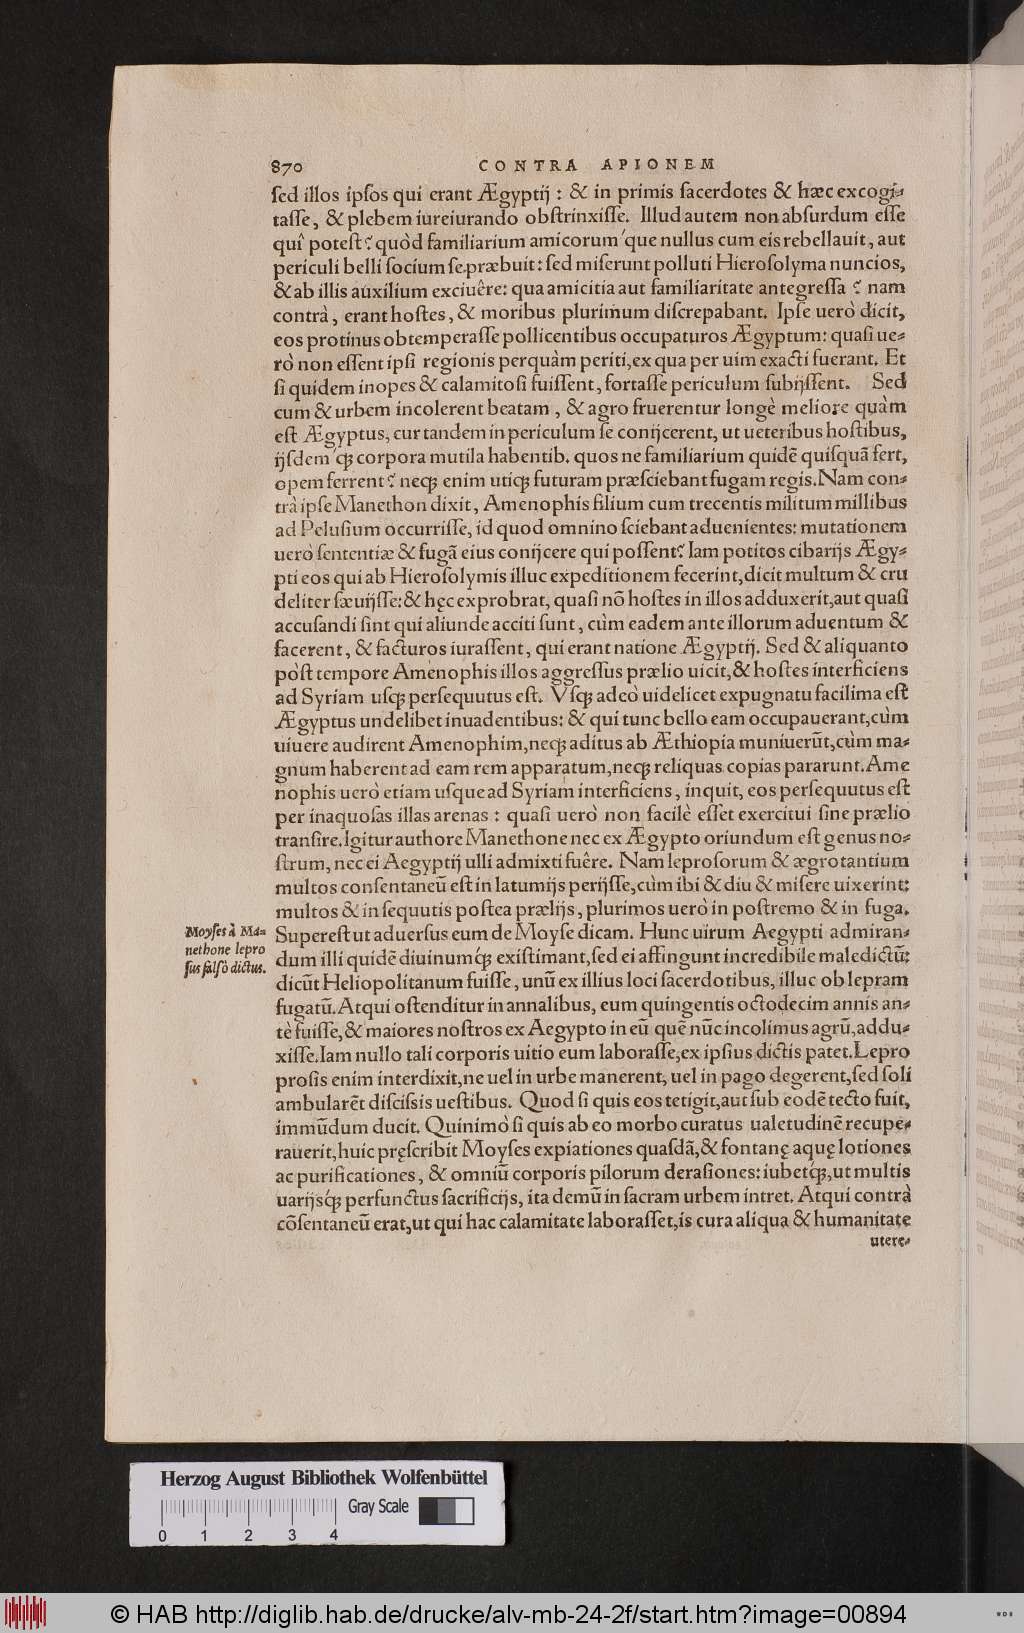 870 CONTRA APIONEM
sed illos ipsos qui erant Ægyptij : & in primis sacerdotes & hæc excogi⸗
tasse, & plebem iureiurando obstrinxisse. Illud autem non absurdum esse
quî potest? quòd familiarium amicorum'que nullus cum eis rebellauit, aut
periculi belli socium se præbuit: sed miserunt polluti Hierosolyma nuncios,
& ab illis auxilium exciuêre: qua amicitia aut familiaritate antegressa ? nam
contrà, erant hostes, & moribus plurimum discrepabant. Ipse uerò dicit,
eos protinus obtemperasse pollicentibus occupaturos Ægyptum: quasi ue⸗
rò non essent ipsi regionis perquàm periti, ex qua per uim exacti fuerant. Et
si quidem inopes & calamitosi fuissent, fortasse periculum subijssent. Sed
cum & urbem incolerent beatam, & agro fruerentur longè meliore quàm
est Ægyptus, cur tandem in periculum se conijcerent, ut ueteribus hostibus,
ijsdem'q; corpora mutila habentib. quos ne familiarium quidē quisquã fert,
opem ferrent? neq; enim utiq; futuram præsciebant fugam regis. Nam con⸗
trà ipse Manethon dixit, Amenophis filium cum trecentis militum millibus
ad Pelusium occurrisse, id quod omnino sciebant aduenientes: mutationem
uerò sententiæ & fugã eius conijcere qui possent? Iam potitos cibarijs Ægy⸗
pti eos qui ab Hierosolymis illuc expeditionem fecerint, dicit multum & cru
deliter sæuijsse: & hęc exprobrat, quasi nõ hostes in illos adduxerit, aut quasi
accusandi sint qui aliunde acciti sunt, cùm eadem ante illorum aduentum &
facerent, & facturos iurassent, qui erant natione Ægyptij. Sed & aliquanto
pòst tempore Amenophis illos aggressus prælio uicit, & hostes interficiens
ad Syriam usq; persequutus est. Vsq; adeò uidelicet expugnatu facilima est
Ægyptus undelibet inuadentibus: & qui tunc bello eam occupauerant, cùm
uiuere audirent Amenophim, neq; aditus ab Æthiopia muniuerũt, cùm ma⸗
gnum haberent ad eam rem apparatum, neq; reliquas copias pararunt. Ame
nophis uerò etiam usque ad Syriam interficiens, inquit, eos persequutus est
per inaquosas illas arenas : quasi uerò non facilè esset exercitui sine prælio
transire. Igitur authore Manethone nec ex Ægypto oriundum est genus no⸗
strum, nec ei Aegyptij ulli admixti fuêre. Nam leprosorum & ægrotantium
multos consentaneũ est in latumijs perijsse, cùm ibi & diu & misere uixerint:
multos & in sequutis postea prælijs, plurimos uerò in postremo & in fuga.
Moyses à Ma⸗
nethone lepro
sus falsò dictus.
Superest ut aduersus eum de Moyse dicam. Hunc uirum Aegypti admiran⸗
dum illi quidē diuinumq́; existimant, sed ei affingunt incredibile maledictũ:
dicũt Heliopolitanum fuisse, unũ ex illius loci sacerdotibus, illuc ob lepram
fugatũ. Atqui ostenditur in annalibus, eum quingentis octodecim annis an⸗
tè fuisse, & maiores nostros ex Aegypto in eũ quē nũc incolimus agrũ, addu⸗
xisse. Iam nullo tali corporis uitio eum laborasse, ex ipsius dictis patet. Lepro
prosis enim interdixit, ne uel in urbe manerent, uel in pago degerent, sed soli
ambularēt discissis uestibus. Quod si quis eos tetigit, aut sub eodē tecto fuit,
immũdum ducit. Quinimò si quis ab eo morbo curatus ualetudinē recupe⸗
rauerit, huic pręscribit Moyses expiationes quasdã, & fontanę aquę lotiones
ac purificationes, & omniũ corporis pilorum derasiones: iubetq́;, ut multis
uarijsq́; perfunctus sacrificijs, ita demũ in sacram urbem intret. Atqui contrà
cõsentaneũ erat, ut qui hac calamitate laborasset, is cura aliqua & humanitate
utere⸗
Herzog August Bibliothek Wolfenbüttel
Gray Scale
0 1 2 3 4
© HAB http://diglib.hab.de/drucke/alv-mb-24-2f/start.htm?image=00894